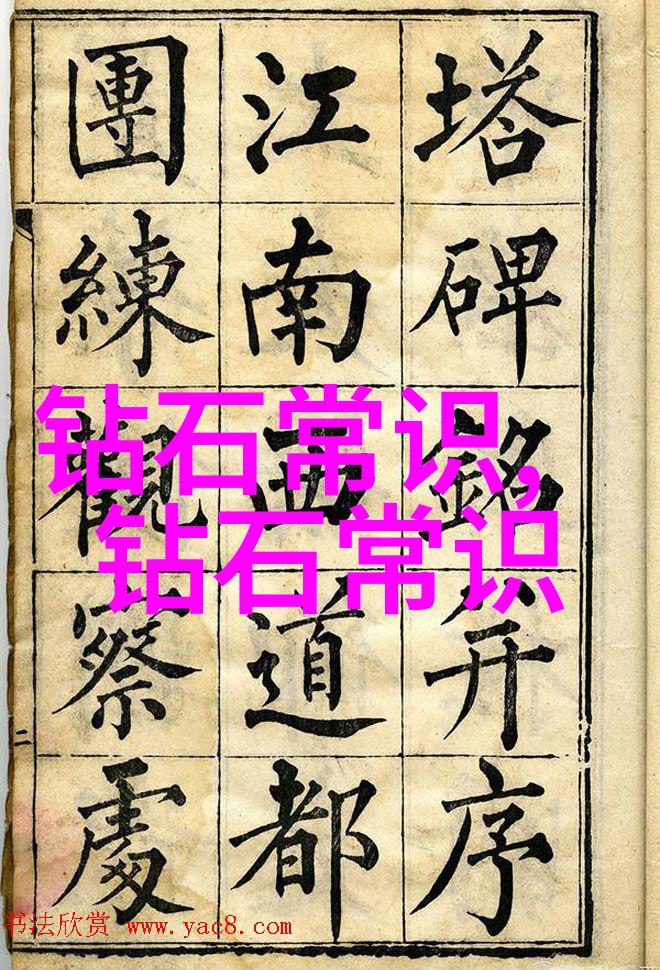 塔碑銘并序
江南西道都
團練觀察處
二
钻石常识,
钻石常识
书法欣赏 www.yac8.com